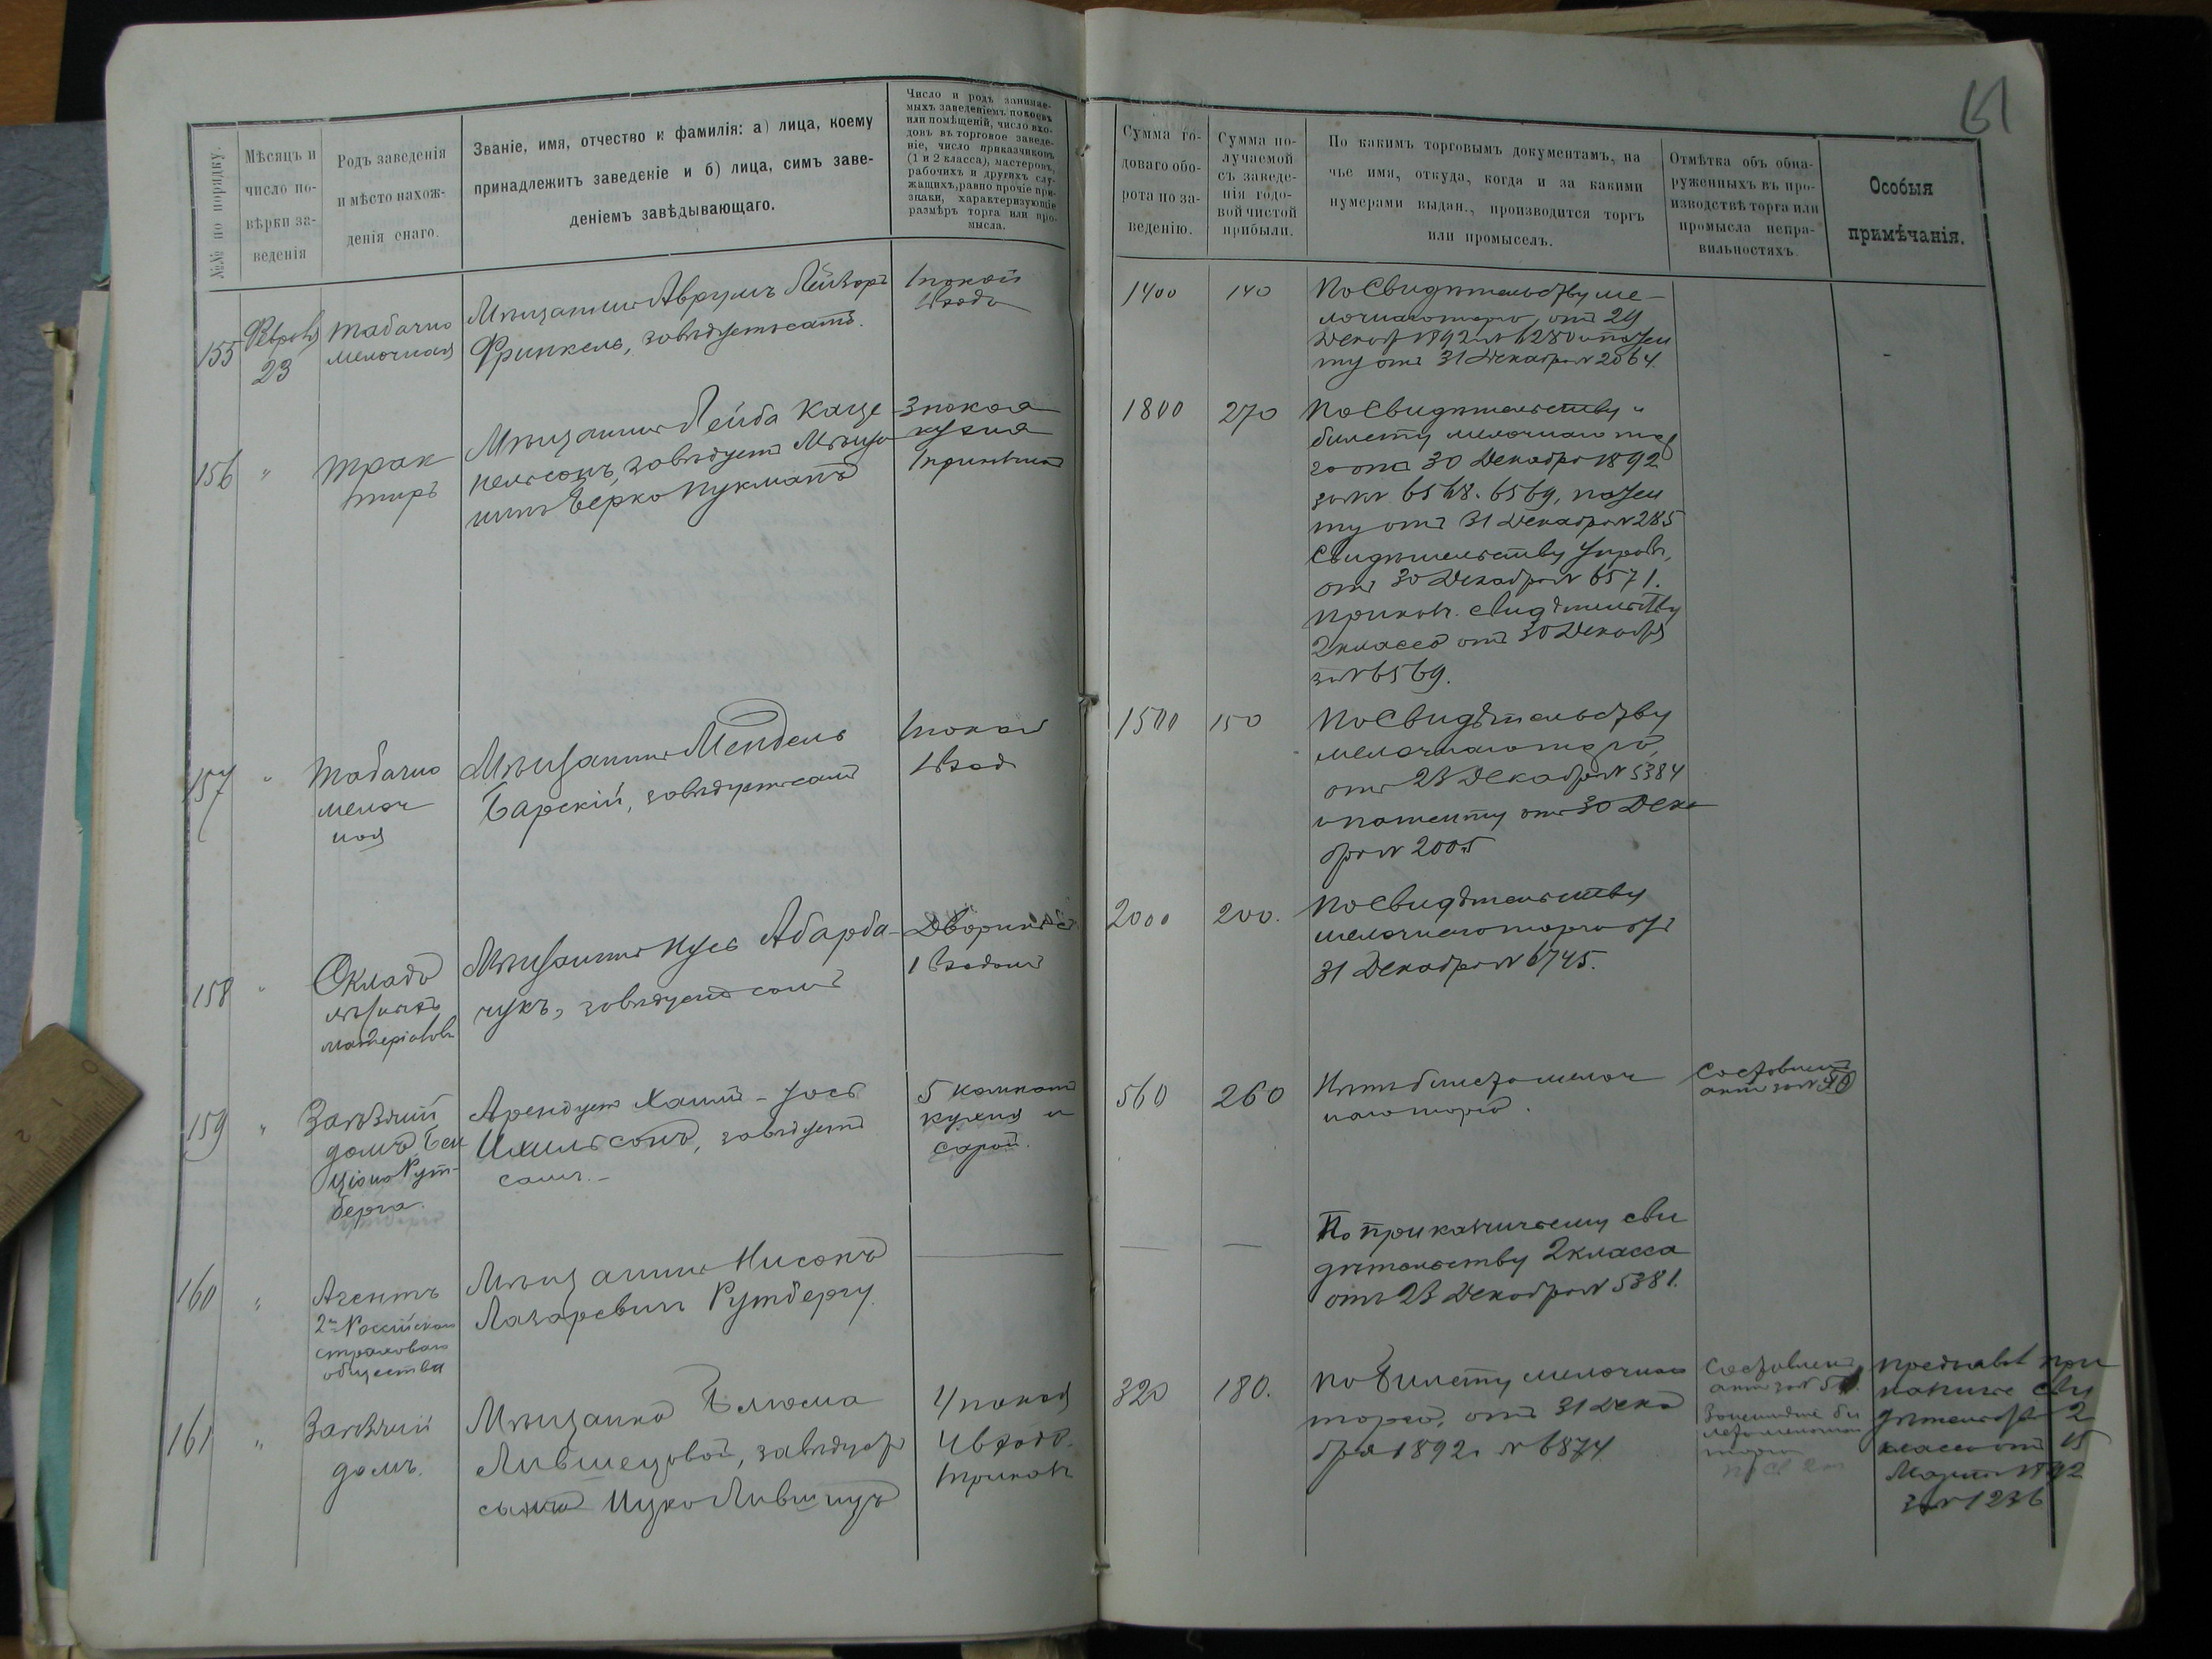 61
№№ по порядку.
Мѣсяцъ и
число по-
вѣрки за-
веденія
Родъ заведенія
и мѣсто нахож-
денія онаго.
Званіе, имя, отчество и фамилія: а) лица, коему
принадлежитъ заведеніе и б) лица, симъ заве-
деніемъ завѣдывающаго.
Число и родъ занимае-
мыхъ заведеніемъ покоевъ
или помѣщеній, число вхо-
довъ въ торговое заведе-
ніе, число приказчиковъ
(1 и 2 класса), мастеровъ,
рабочихъ и другихъ слу-
жащихъ, равно прочіе при-
знаки, характеризующіе
размѣръ торга или про-
мысла.
Сумма го-
доваго обо-
рота по за-
веденію.
Сумма по-
лучаемой
съ заведе-
нія годо-
вой чистой
прибыли.
По какимъ торговымъ документамъ, на
чье имя, откуда, когда и за какими
нумерами выдан., производится торгъ
или промыселъ.
Отмѣтка объ обна-
руженныхъ въ про-
изводствѣ торга или
промысла непра-
вильностяхъ.
Особыя
примѣчанія.
155
Февраля
23
Табачно
мелочная
Мѣщанинъ Аврумъ Лейзоръ
Фринкель, завѣдуетъ самъ.
1 покой
1 входъ
1400
140
По Свидѣтельству ме-
лочнаго торга, отъ 29
Декабр 1892 г. № 6280 и патен
ту отъ 31 Декабря № 2064.
156
"
Трак
тиръ
Мѣщанинъ Лейба Каце
нельсонъ, завѣдуетъ Мѣща
нинъ Берко Цукманъ
3 покоя
кухня
1800
270
По Свидѣтельству и
билету мелочнаго тор
га отъ 30 Декабря 1892
за №№ 6568. 6569, патен
ту отъ 31 Декабря № 285
Свидѣтельству Управы,
отъ 30 Декабря № 6571.
Приказч. свидѣтельству
2 класса отъ 30 Декабря
за № 6569.
157
"
Табачно
мелоч
ная
Мѣщанинъ Мендель
Барскій, завѣдуетъ самъ
1 покой
1 входъ
1500
150
По Свидѣтельству
мелочнаго торга,
отъ 23 Декабря № 5384
и патенту отъ 30 Дека
бря № 2005
158
"
Складъ
лѣсныхъ
матеріаловъ
Мѣщанинъ Нусь Абарба-
чукъ, завѣдуетъ самъ
2000
200.
По Свидѣтельству
мелочнаго торга отъ
31 Декабря № 6745.
159
"
Заѣзжій
домъ Бен
ціона Рут-
берга.
Арендуетъ Хаимъ-Іось
Ихильсонъ, завѣдуетъ
самъ.
5 комнатъ
кухня и
сарай.
560
260
Нѣтъ билета мелоч
наго торга.
Составленъ
актъ за №
160
"
Агентъ
2го Россійскаго
страховаго
общества
Мѣщанинъ Нисонъ
Лазаревичъ Рутбергъ.
—
—
По приказчичьему сви
дѣтельству 2 класса
отъ 23 Декабря № 5381.
161
"
Заѣзжій
домъ.
Мѣщанка Блюма
Лившецовой, завѣдуетъ
сынъ Ицко Лившицъ
4 покоя
4 входа
1 приказч
320
180.
По Билету мелочнаго
торга, отъ 31 Дека
бря 1892 г. № 6874.
Составленъ
актъ за №
торга
Предъявл при
кащичье сви
дѣтельство 2
класса отъ 15
Марта 1892
за № 1236